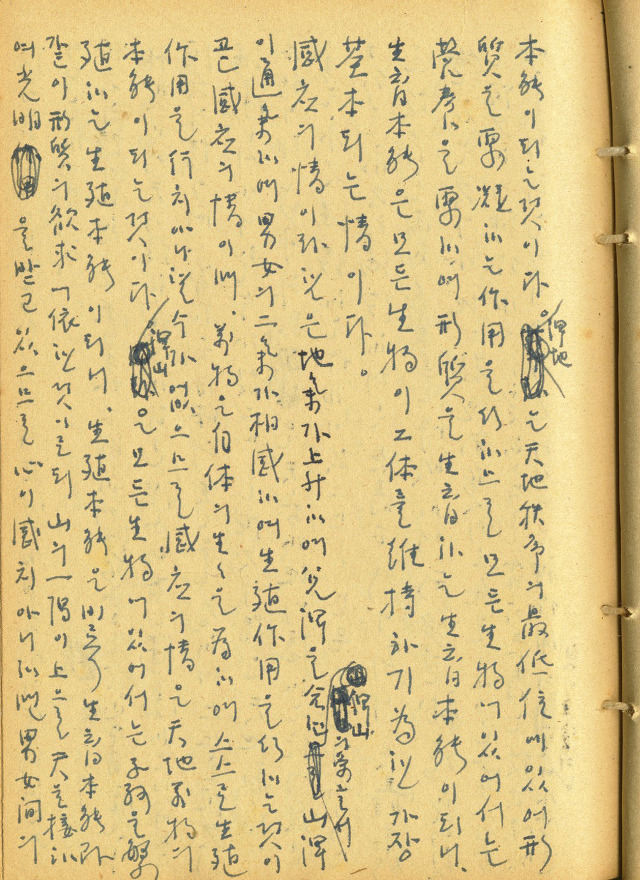 本能이 되는것이다。坤地는 天地秩序의 最低位에 있어 形
質을 專凝하는 作用을 行하므로 모든 生物에 있어서는
營養을 專하여 形質을 生育하는 生育本能이 되니、
生育本能은 모든 生物이 그 体를 維持하기 爲한 가장
基本되는 情이다。
感應의 情이라 함은 地氣가 上升하여 兌澤을 山澤
이 通氣하여 男女의 二氣가 相感하여 生殖作用을 行하는것이
곧 感應의 情이며、萬物은 自体의 生生을 爲하여 스스로 生殖
作用을 行치 아니할수가 없으므로 感應의 情은 天地萬物의
本能이 되는것이다 艮山은 모든 生物에 있어서는 子孫을 繁
殖하는 生殖本能이 되니、生殖本能은 비록 生育本能과
같이 形質의 欲求에 依한것이로되 山의 一陽이 上으로 天을 接하
여 光明을 받고 있으므로 心이 感치 아니하면 男女間의